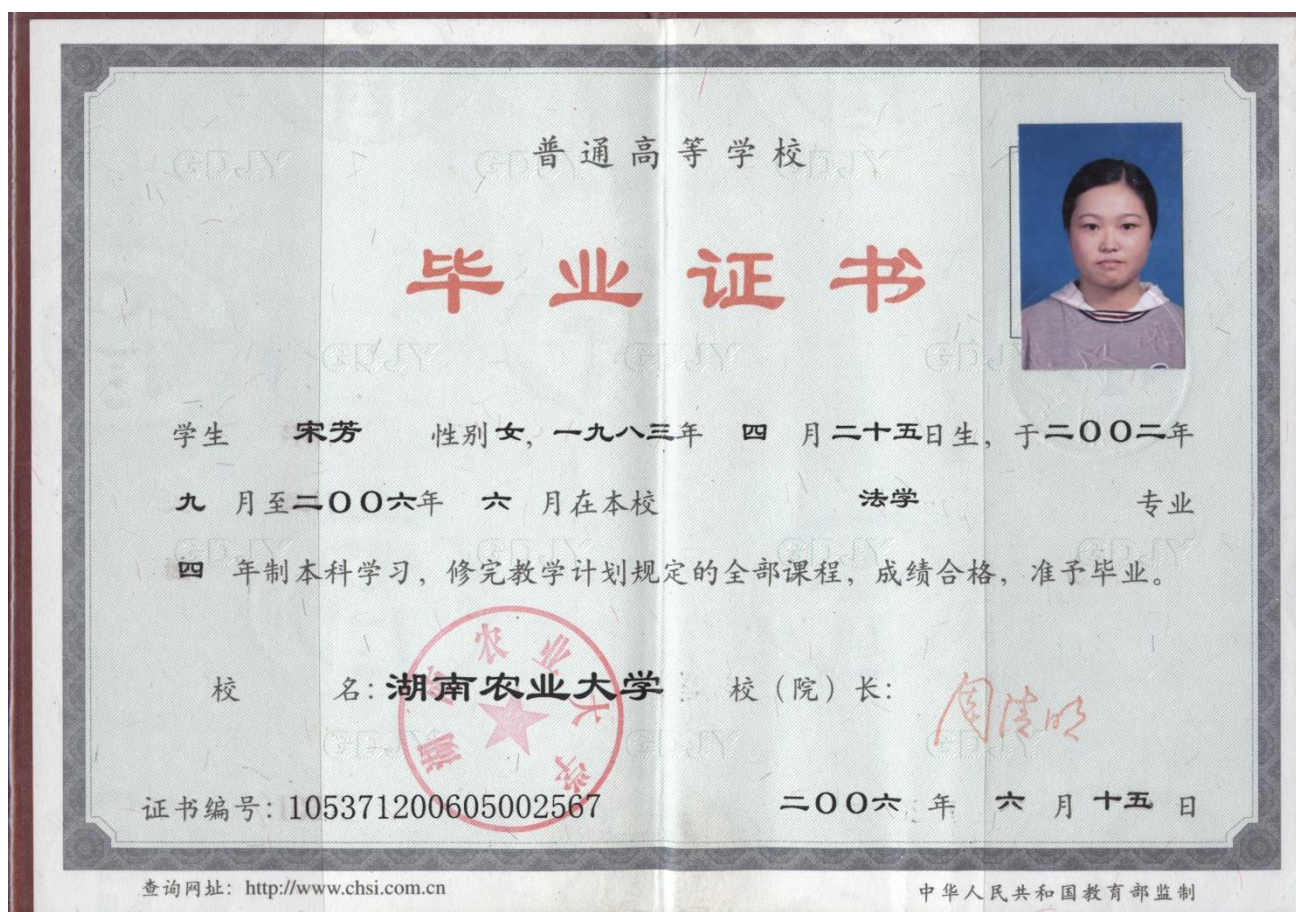 普通高等学校
毕业证书
学生 宋芳 性别女，一九八三年 四 月二十五日生，于二〇〇二年
九 月至二〇〇六年 六 月在本校 法学 专业
四 年制本科学习，修完教学计划规定的全部课程，成绩合格，准予毕业。
校 名：湖南农业大学 校（院）长：周清明
湖南农业大学
证书编号：105371200605002567 二〇〇六 年 六 月 十五 日
查询网址：http://www.chsi.com.cn 中华人民共和国教育部监制